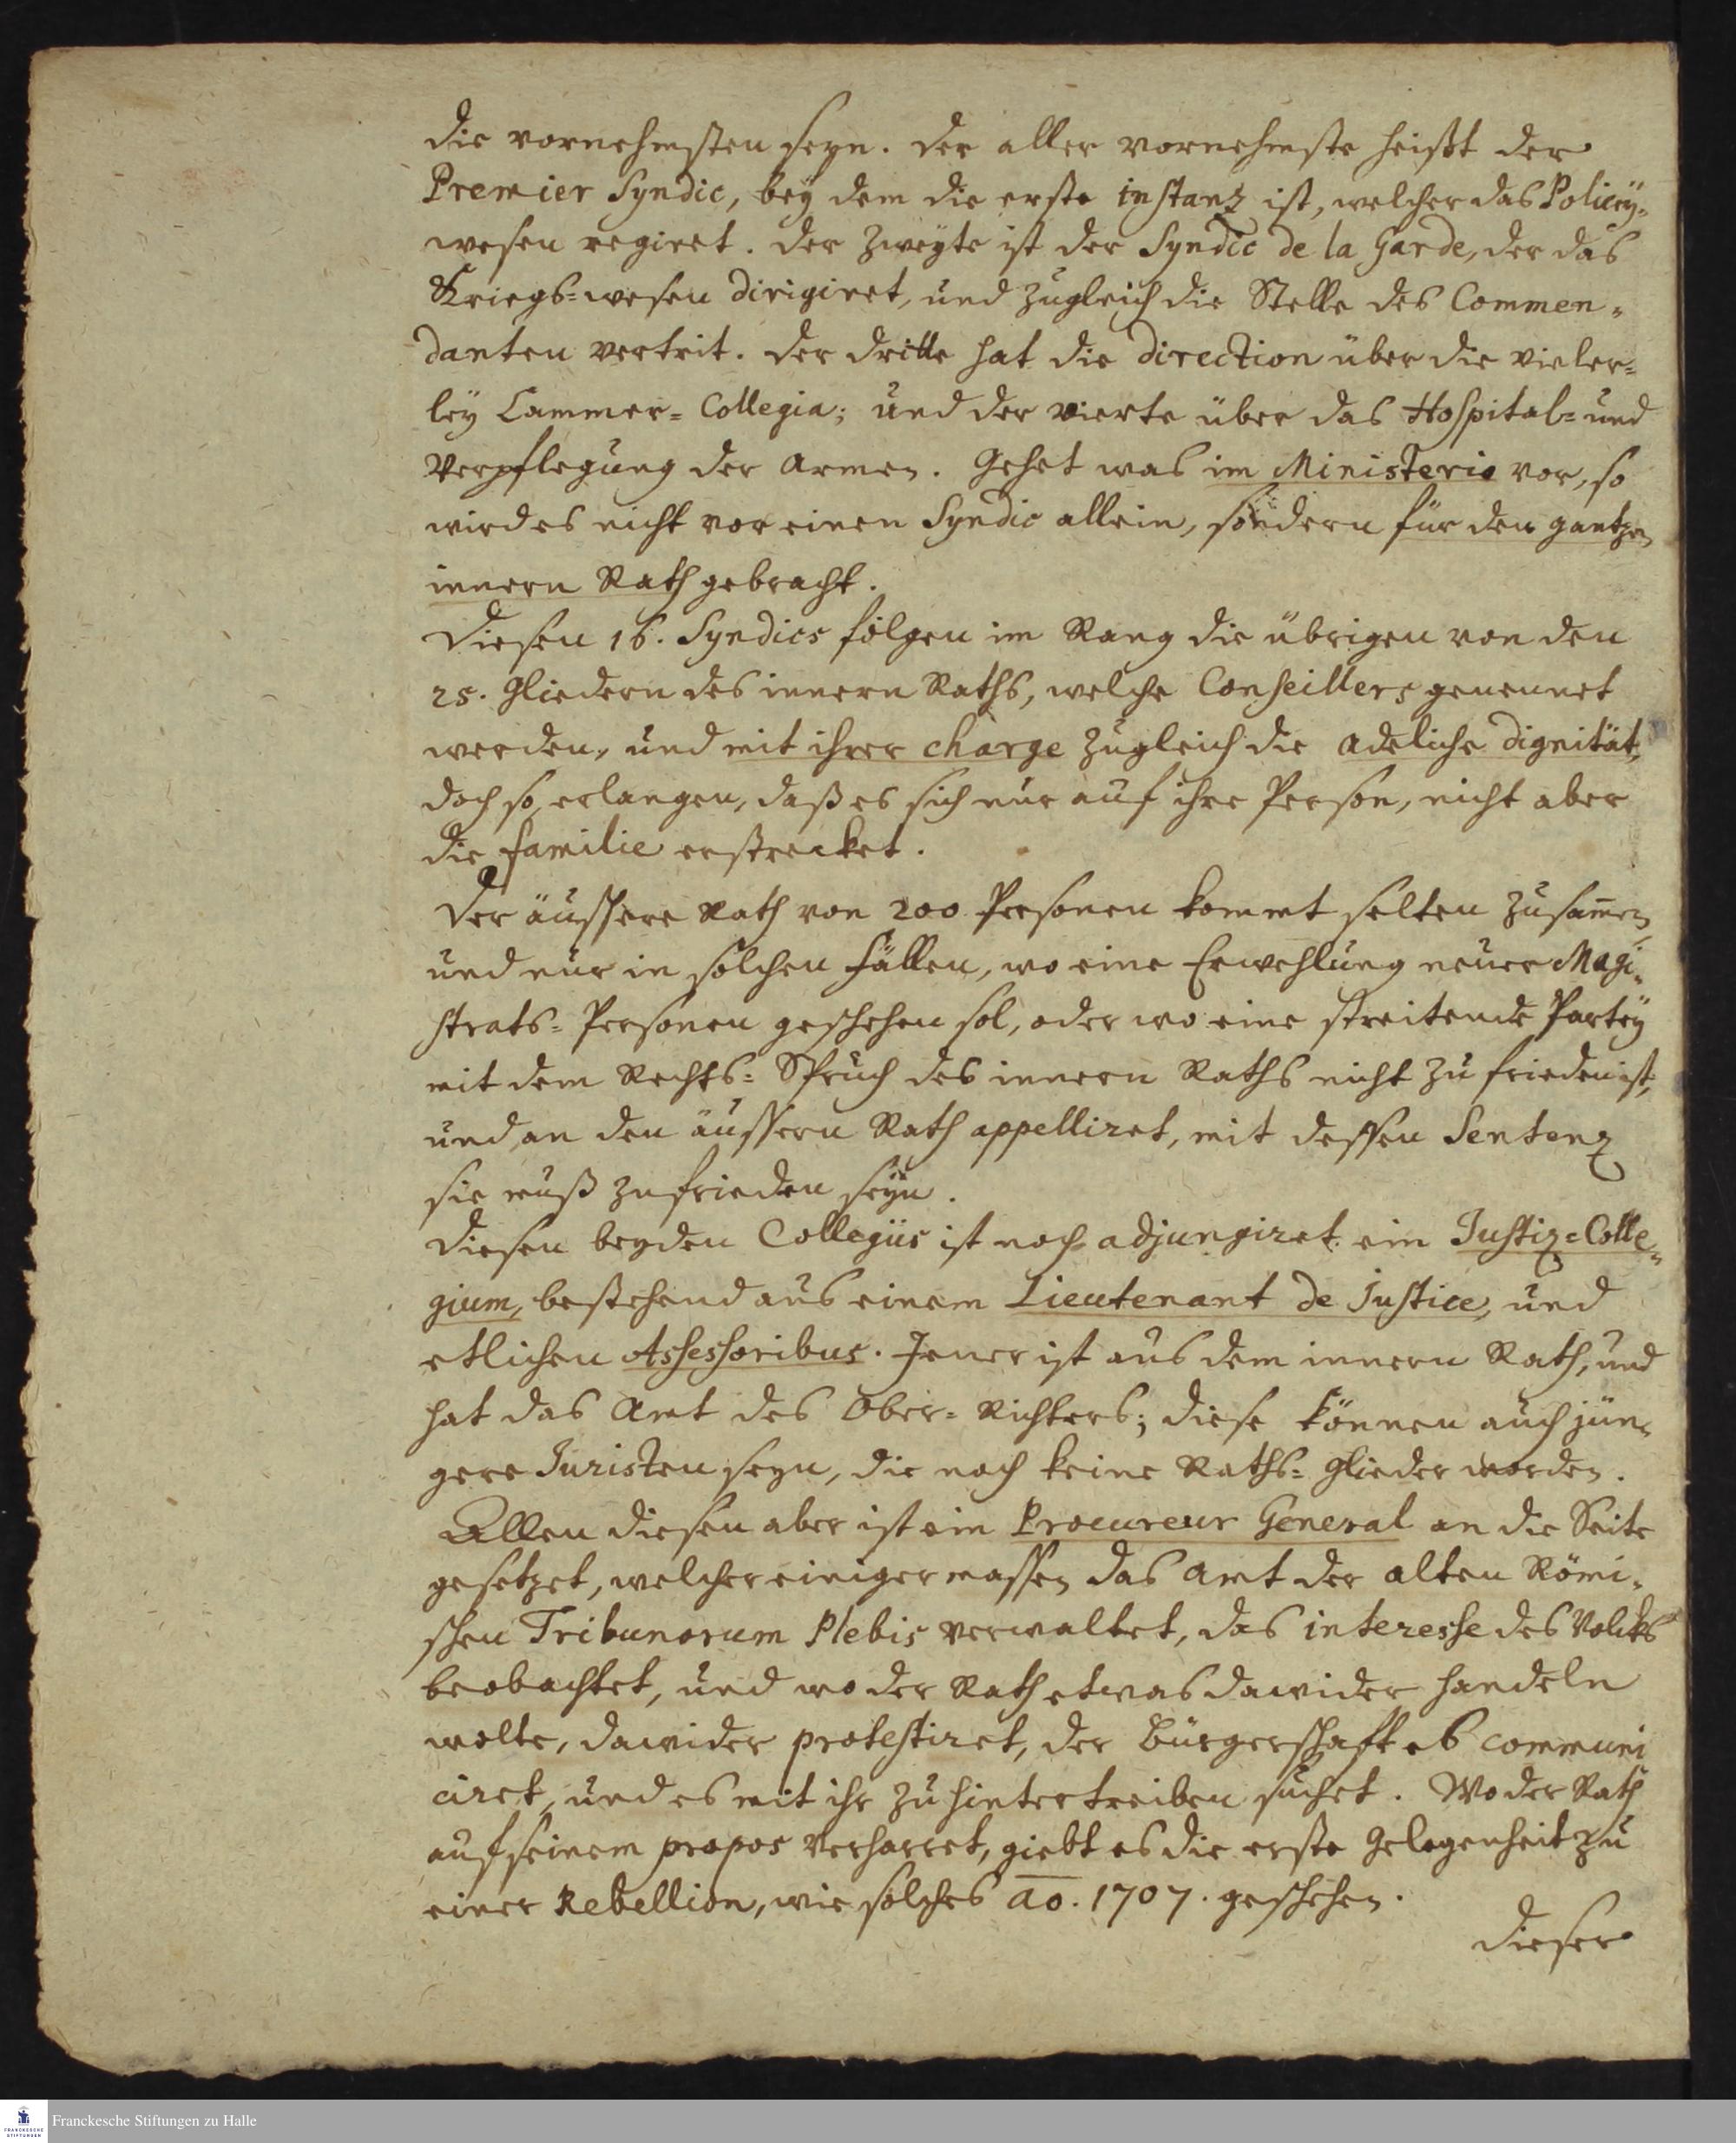 die vornehmsten seyn. der aller vornehmste heißt der
Premier Syndic, bey dem die erste instanz ist, welcher das Policey-
wesen regiret. der zweyte ist der Syndic de la Garde, der das
Kriegs-wesen dirigiret, und zugleich die Stelle des Commen-
danten vertrit. der dritte hat die direction über die vieler-
ley Cammer-Collegia; und der vierte über das Hospital- und
Verpflegung der Armen. Gehet was im Ministerio vor, so
wird es nicht vor einen Syndic allein, sondern für den gantzen
innern Rath gebracht.
Diesen 16. Syndics folgen im Rang die übrigen von den
25. Gliedern des innern Raths, welche Conseillers genennet
werden, und mit ihrer charge zugleich die Adeliche dignität,
doch so, erlangen, daß es sich nur auf ihre Person, nicht aber
die familie erstrecket.
Der äussere Rath von 200 Personen kommt selten zusam̅en,
und nur in solchen Fällen, wo eine Erwehlung neuer Magi-
strats-Personen geschehen sol, oder wo eine streitende Partey
mit dem Rechts-Spruch des innern Raths nicht zu frieden ist,
und an den äussern Rath appelliret, mit dessen Sentenz
sie muß zufrieden seyn.
Diesen beyden Collegiis ist noch adjungiret ein Justiz-Colle-
gium, bestehend aus einem Lieutenant de Justice, und
etlichen Assessoribus. Jener ist aus dem innern Rath, und
hat das Amt des Ober-Richters; diese können auch jün-
gere Juristen seyn, die noch keine Raths-Glieder worden.
Allen diesen aber ist ein Procureur General an die Seite
gesetzet, welcher einiger massen das Amt der alten Römi-
schen Tribunorum Plebis verwaltet, das interesse des Volcks
beobachtet, und wo der Rath etwas dawider handeln
wolte, dawider protestiret, der Bürgerschafft es communi
ciret, und es mit ihr zu hintertreiben suchet. Wo der Rath
auf seinem propos verharret, giebt es die erste Gelegenheit zu
einer Rebellion, wie solches ao. 1707. geschehen.
dieser
Franckesche Stiftungen zu Halle
FRANCKESCHE
STIFTUNGEN